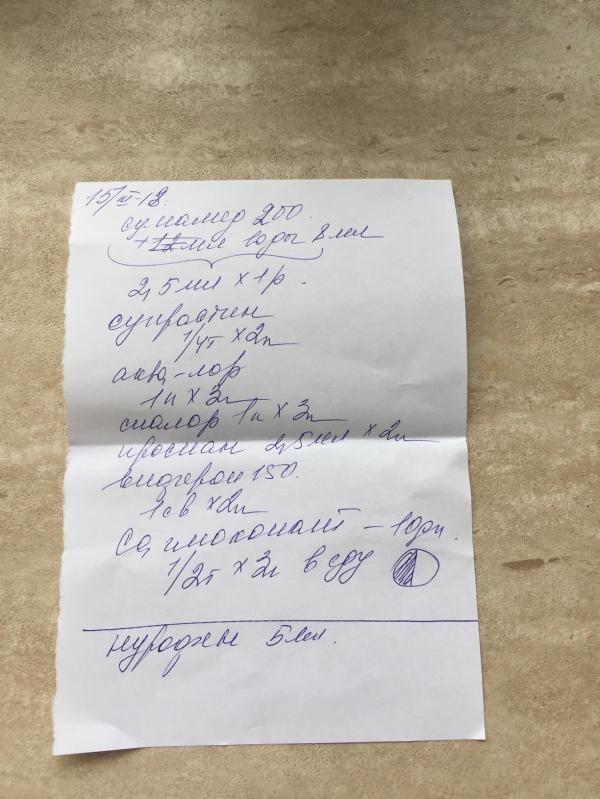 15/III-18.
сумамед 200.
+12мл воды 8 мл
2,5 мл х 1р.
супрастин
1/4т х 2р
аква-лор
1к х 3р
сиалор 1к х 3р
проспан 2,5мл х 2р
виферон 150.
1св х 2р
Са глюконат - 10дн.
1/2т х 3р в еду
нурофен 5мл.